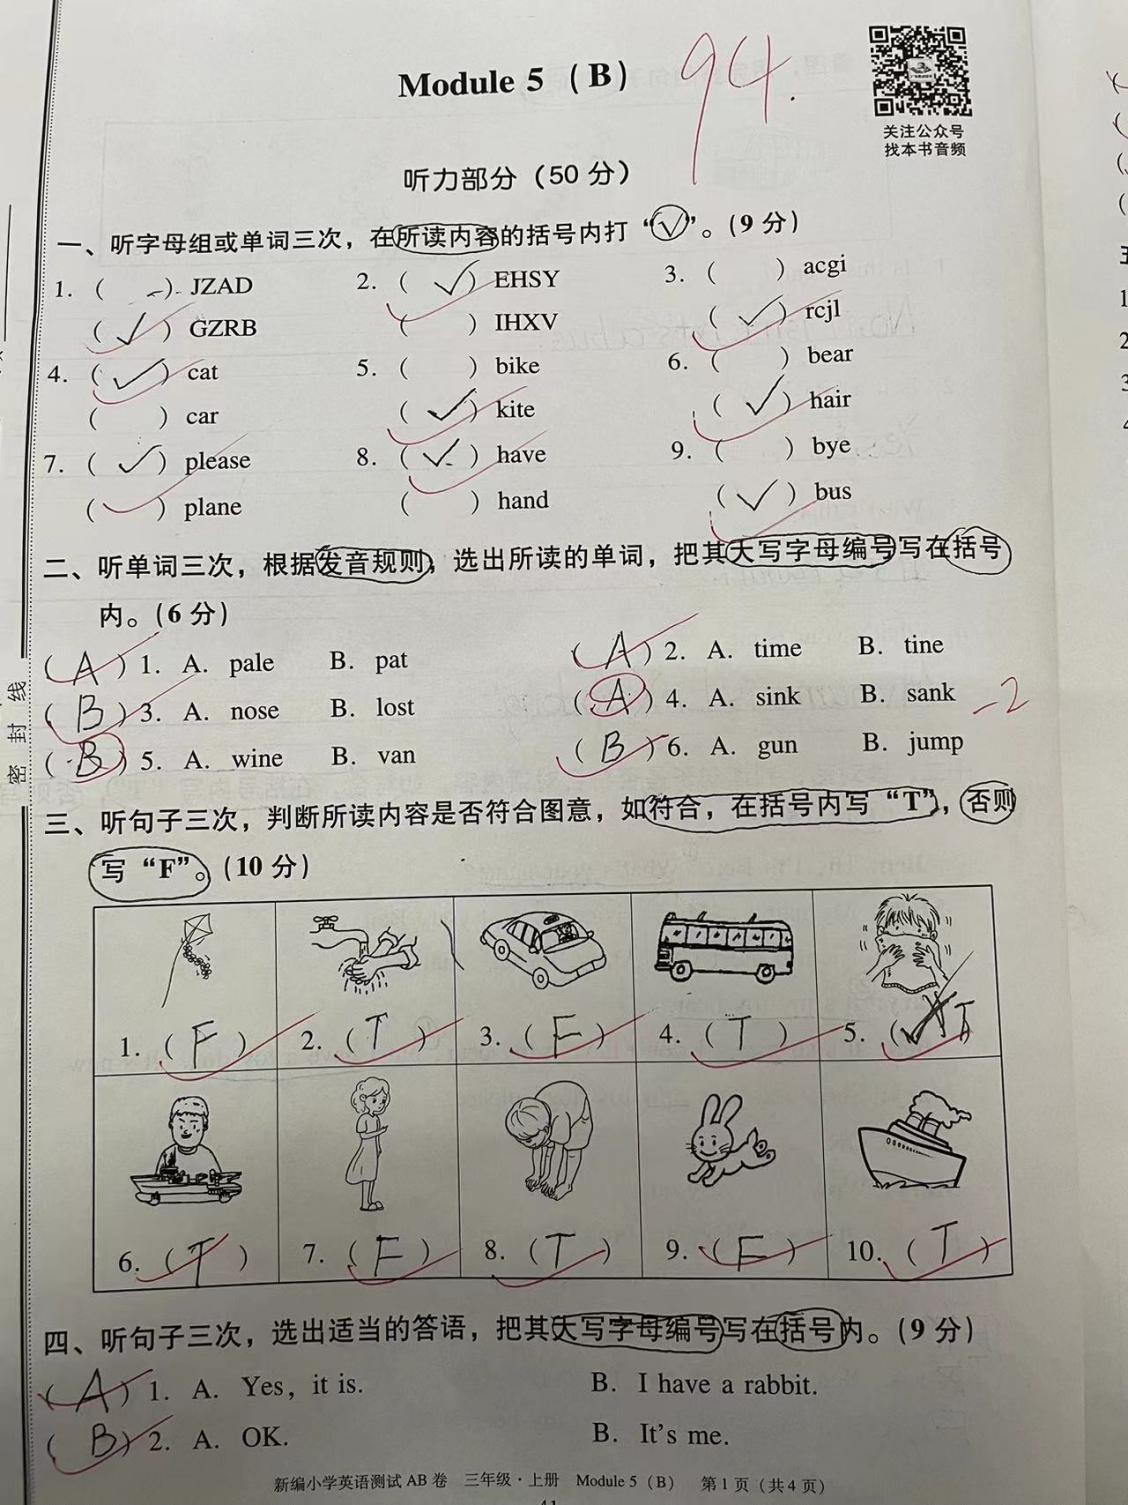 Module 5 （B） 94.
关注公众号
找本书音频
听力部分（50 分）
一、听字母组或单词三次，在所读内容的括号内打“✓”。（9 分）
1. （ ） JZAD 2. （ ✓ ） EHSY 3. （ ） acgi
（ ✓ ） GZRB （ ） IHXV （ ✓ ） rcjl
4. （ ✓ ） cat 5. （ ） bike 6. （ ） bear
（ ） car （ ✓ ） kite （ ✓ ） hair
7. （ ✓ ） please 8. （ ✓ ） have 9. （ ） bye
（ ） plane （ ） hand （ ✓ ） bus
二、听单词三次，根据发音规则，选出所读的单词，把其大写字母编号写在括号
内。（6 分）
（ A ） 1. A. pale B. pat （ A ） 2. A. time B. tine
（ B ） 3. A. nose B. lost （ A ） 4. A. sink B. sank -2
（ B ） 5. A. wine B. van （ B ） 6. A. gun B. jump
三、听句子三次，判断所读内容是否符合图意，如符合，在括号内写“T”，否则
写“F”。（10 分）
1. （ F ） 2. （ T ） 3. （ F ） 4. （ T ） 5. （ T ）
6. （ T ） 7. （ F ） 8. （ T ） 9. （ F ） 10. （ T ）
四、听句子三次，选出适当的答语，把其大写字母编号写在括号内。（9 分）
（ A ） 1. A. Yes, it is. B. I have a rabbit.
（ B ） 2. A. OK. B. It's me.
新编小学英语测试 AB 卷 三年级·上册 Module 5（B） 第 1 页（共 4 页）
密 封 线